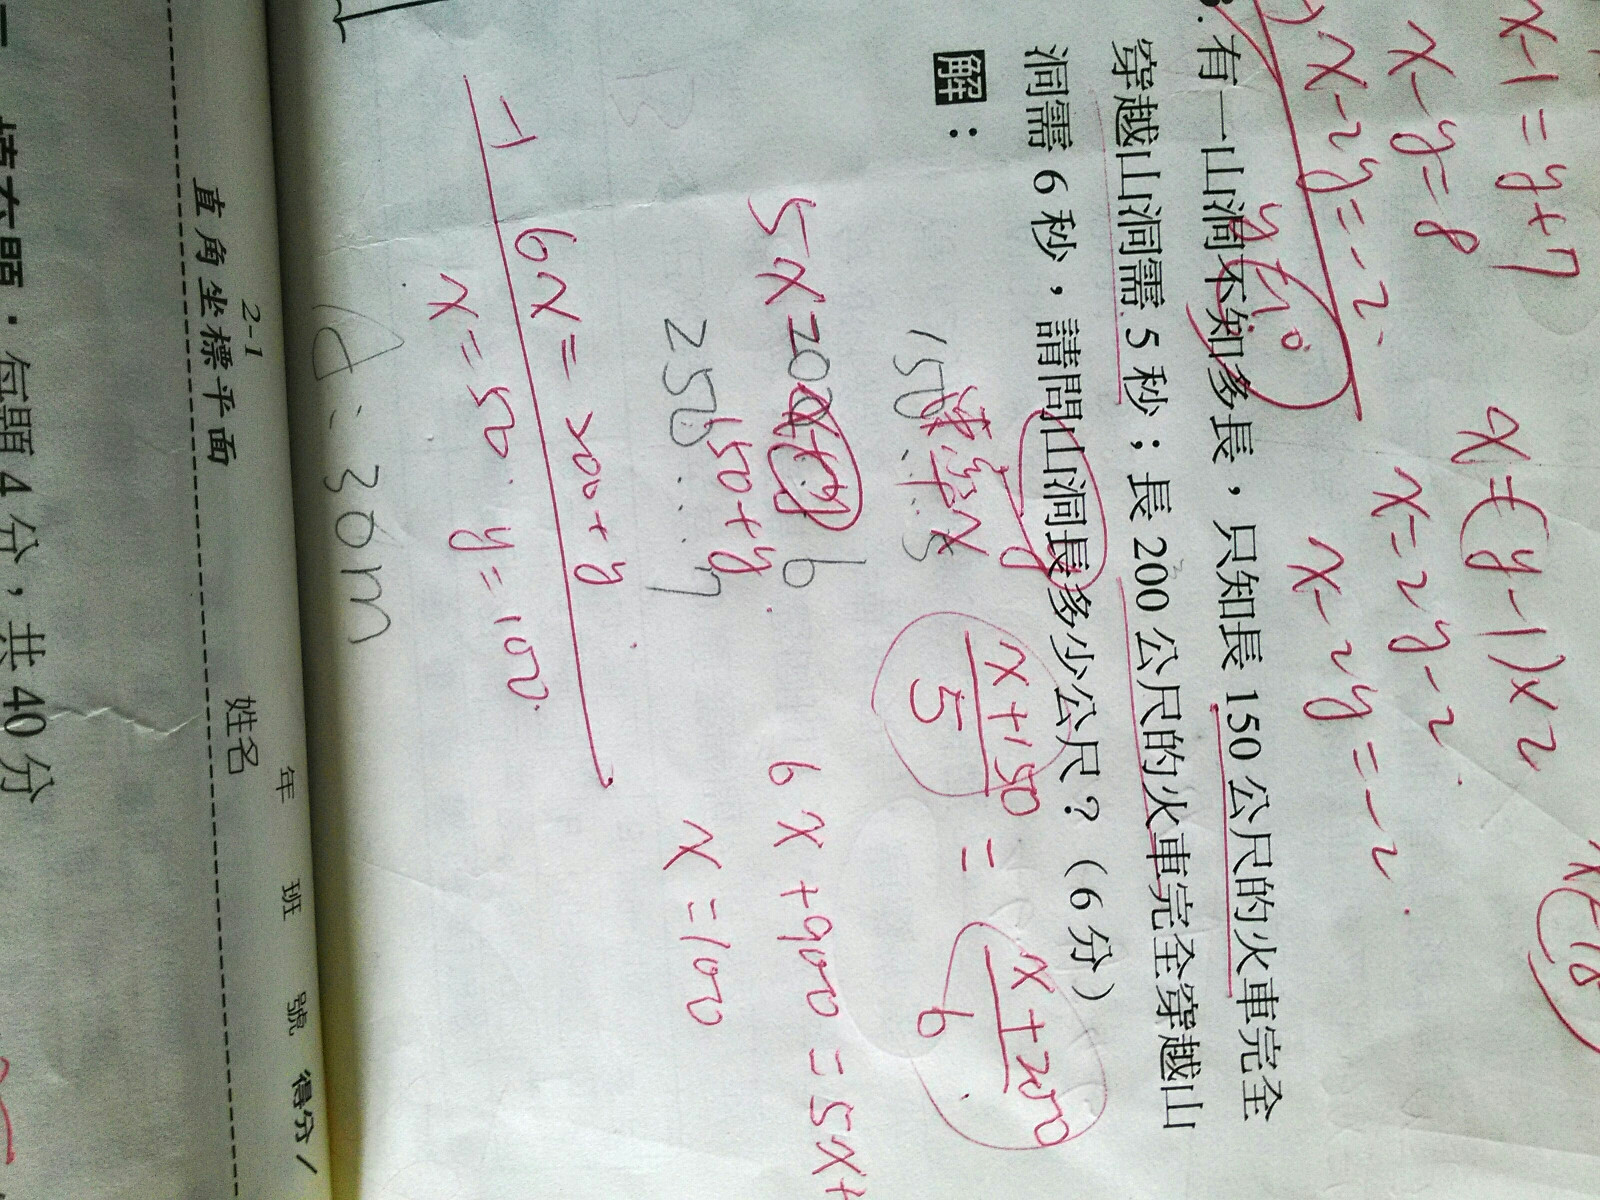 x-1=y+7
x-y=8
x-2y=-2
x=(y-1)x2
x=2y-2
x-2y=-2
有一山洞不知多長，只知長 150 公尺的火車完全
穿越山洞需 5 秒；長 200 公尺的火車完全穿越山
洞需 6 秒，請問山洞長多少公尺？（6 分）
y
解：
150
x
5
x+150
5
=
x+200
6
5x=
150+y
6
250
6x+900=5x+
x=100
6x=200+y
x=50
y=100
A:36m
2-1
直角坐標平面
年 班 號 得分
姓名
每題 4 分，共 40 分